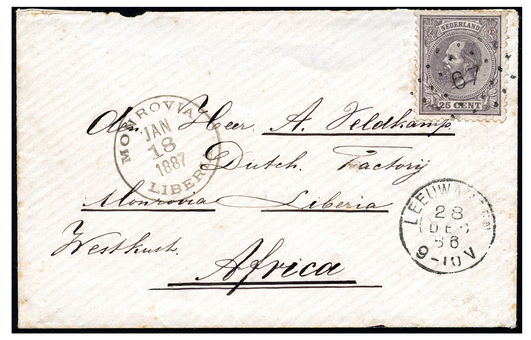 NEDERLAND
67
25 CENT
MONROVIA
JAN
18
1887
LIBERIA
den Heer A. Veldkamp
Dutch Factory
Monrovia Liberia
Westkust
Africa
LEEUWARDEN
28
DEC
86
9-10V